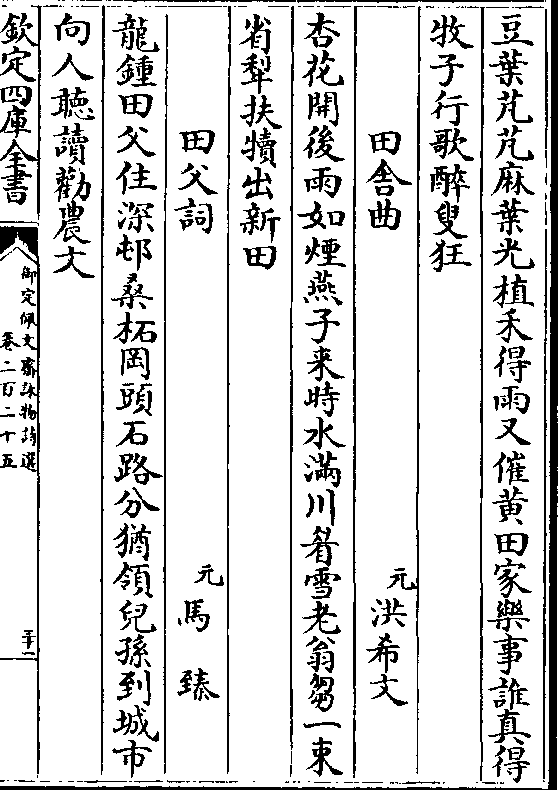 豆葉芃芃麻葉光植禾得雨又催黄田家樂事誰真得
牧子行歌醉叟狂
田舎曲　元洪希文
杏花開後雨如煙燕子来時水滿川眉雪老翁芻一束
省犂扶犢出新田
田父詞　元馬臻
龍鍾田父住深邨桑柘岡頭石路分猶領兒孫到城市
向人聽讀勸農文
欽定四庫全書
御定佩文齋詠物詩選
卷二百二十五